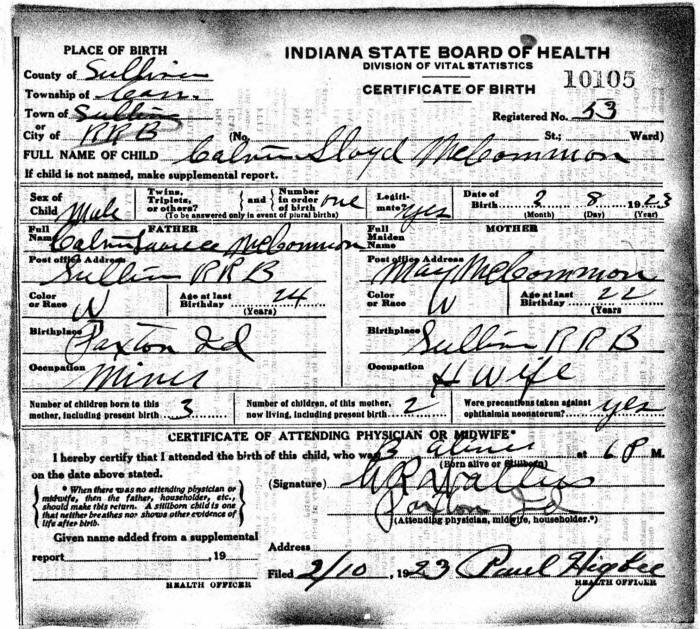 PLACE OF BIRTH
INDIANA STATE BOARD OF HEALTH
DIVISION OF VITAL STATISTICS
10105
CERTIFICATE OF BIRTH
County of Sullivan
Township of Cass.
Town of Sullivan
or
City of R R B
Registered No. 53
(No. St.; Ward)
FULL NAME OF CHILD Calvin Lloyd McCommon
If child is not named, make supplemental report.
Sex of Child Male
Twins, Triplets, or others? { and } Number in order of birth one
(To be answered only in event of plural births)
Legiti- mate? yes
Date of Birth 2 8 1923
(Month) (Day) (Year)
Full Name FATHER
Calvin McCommon
Full Maiden Name MOTHER
May McCommon
Post office Address
Sullivan R R B
Post office Address
Color or Race W
Age at last Birthday 24
(Years)
Color or Race W
Age at last Birthday 22
(Years)
Birthplace
Paxton Ind
Birthplace
Sullivan R R B
Occupation
Miner
Occupation
H Wife
Number of children born to this mother, including present birth 3
Number of children, of this mother, now living, including present birth 2
Were precautions taken against ophthalmia neonatorum? yes
CERTIFICATE OF ATTENDING PHYSICIAN OR MIDWIFE*
I hereby certify that I attended the birth of this child, who was B alive at 6 P M.
(Born alive or Stillborn)
on the date above stated.
* When there was no attending physician or
midwife, then the father, householder, etc.,
should make this return. A stillborn child is one
that neither breathes nor shows other evidence of
life after birth.
(Signature)
Paxton Ind
(Attending physician, midwife, householder.*)
Given name added from a supplemental
report , 19
HEALTH OFFICER
Address
Filed 2/10, 1923 Paul Higbee
HEALTH OFFICER